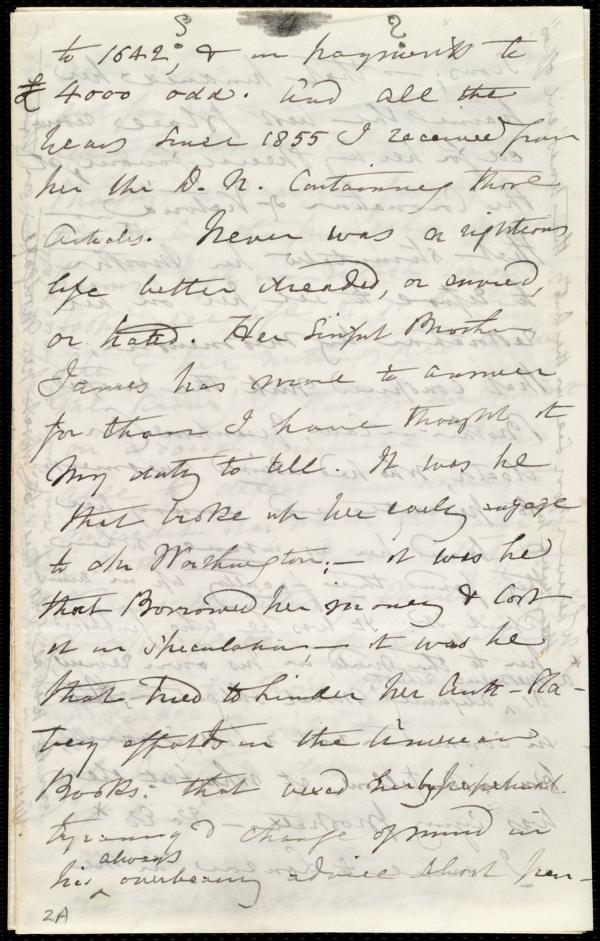 4
to 1642; & in payments to
£4000 odd. And all the
years since 1855 I received from
her the D. N. Containing those
Articles. Never was a righteous
life better dreaded, or envied,
or hated. Her Sinful Brother
James has more to answer
for than I have thought it
my duty to tell. It was he
that broke up her early engage
to Mr Worthington; – it was he
that Borrowed her money & lost
it in Speculation – it was he
that tried to hinder her Anti-Sla-
very efforts in the American
Books: that vexed her by
tyranny & change of mind in
his always overbearing advice about her
2A